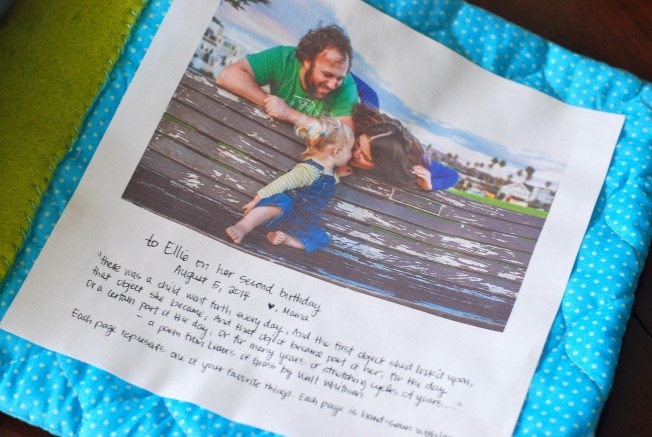 to Ellie on her second birthday
August 5, 2014 ♥, Mama
"there was a child went forth every day, And the first object she'd look'd upon,
that object she became, And that object became part of her, for the day
Or a certain part of the day, Or for many years or stretching cycles of years..."
- a poem from Leaves of Grass by Walt Whitman
Each page represents one of your favourite things. Each page is hand-sewn with